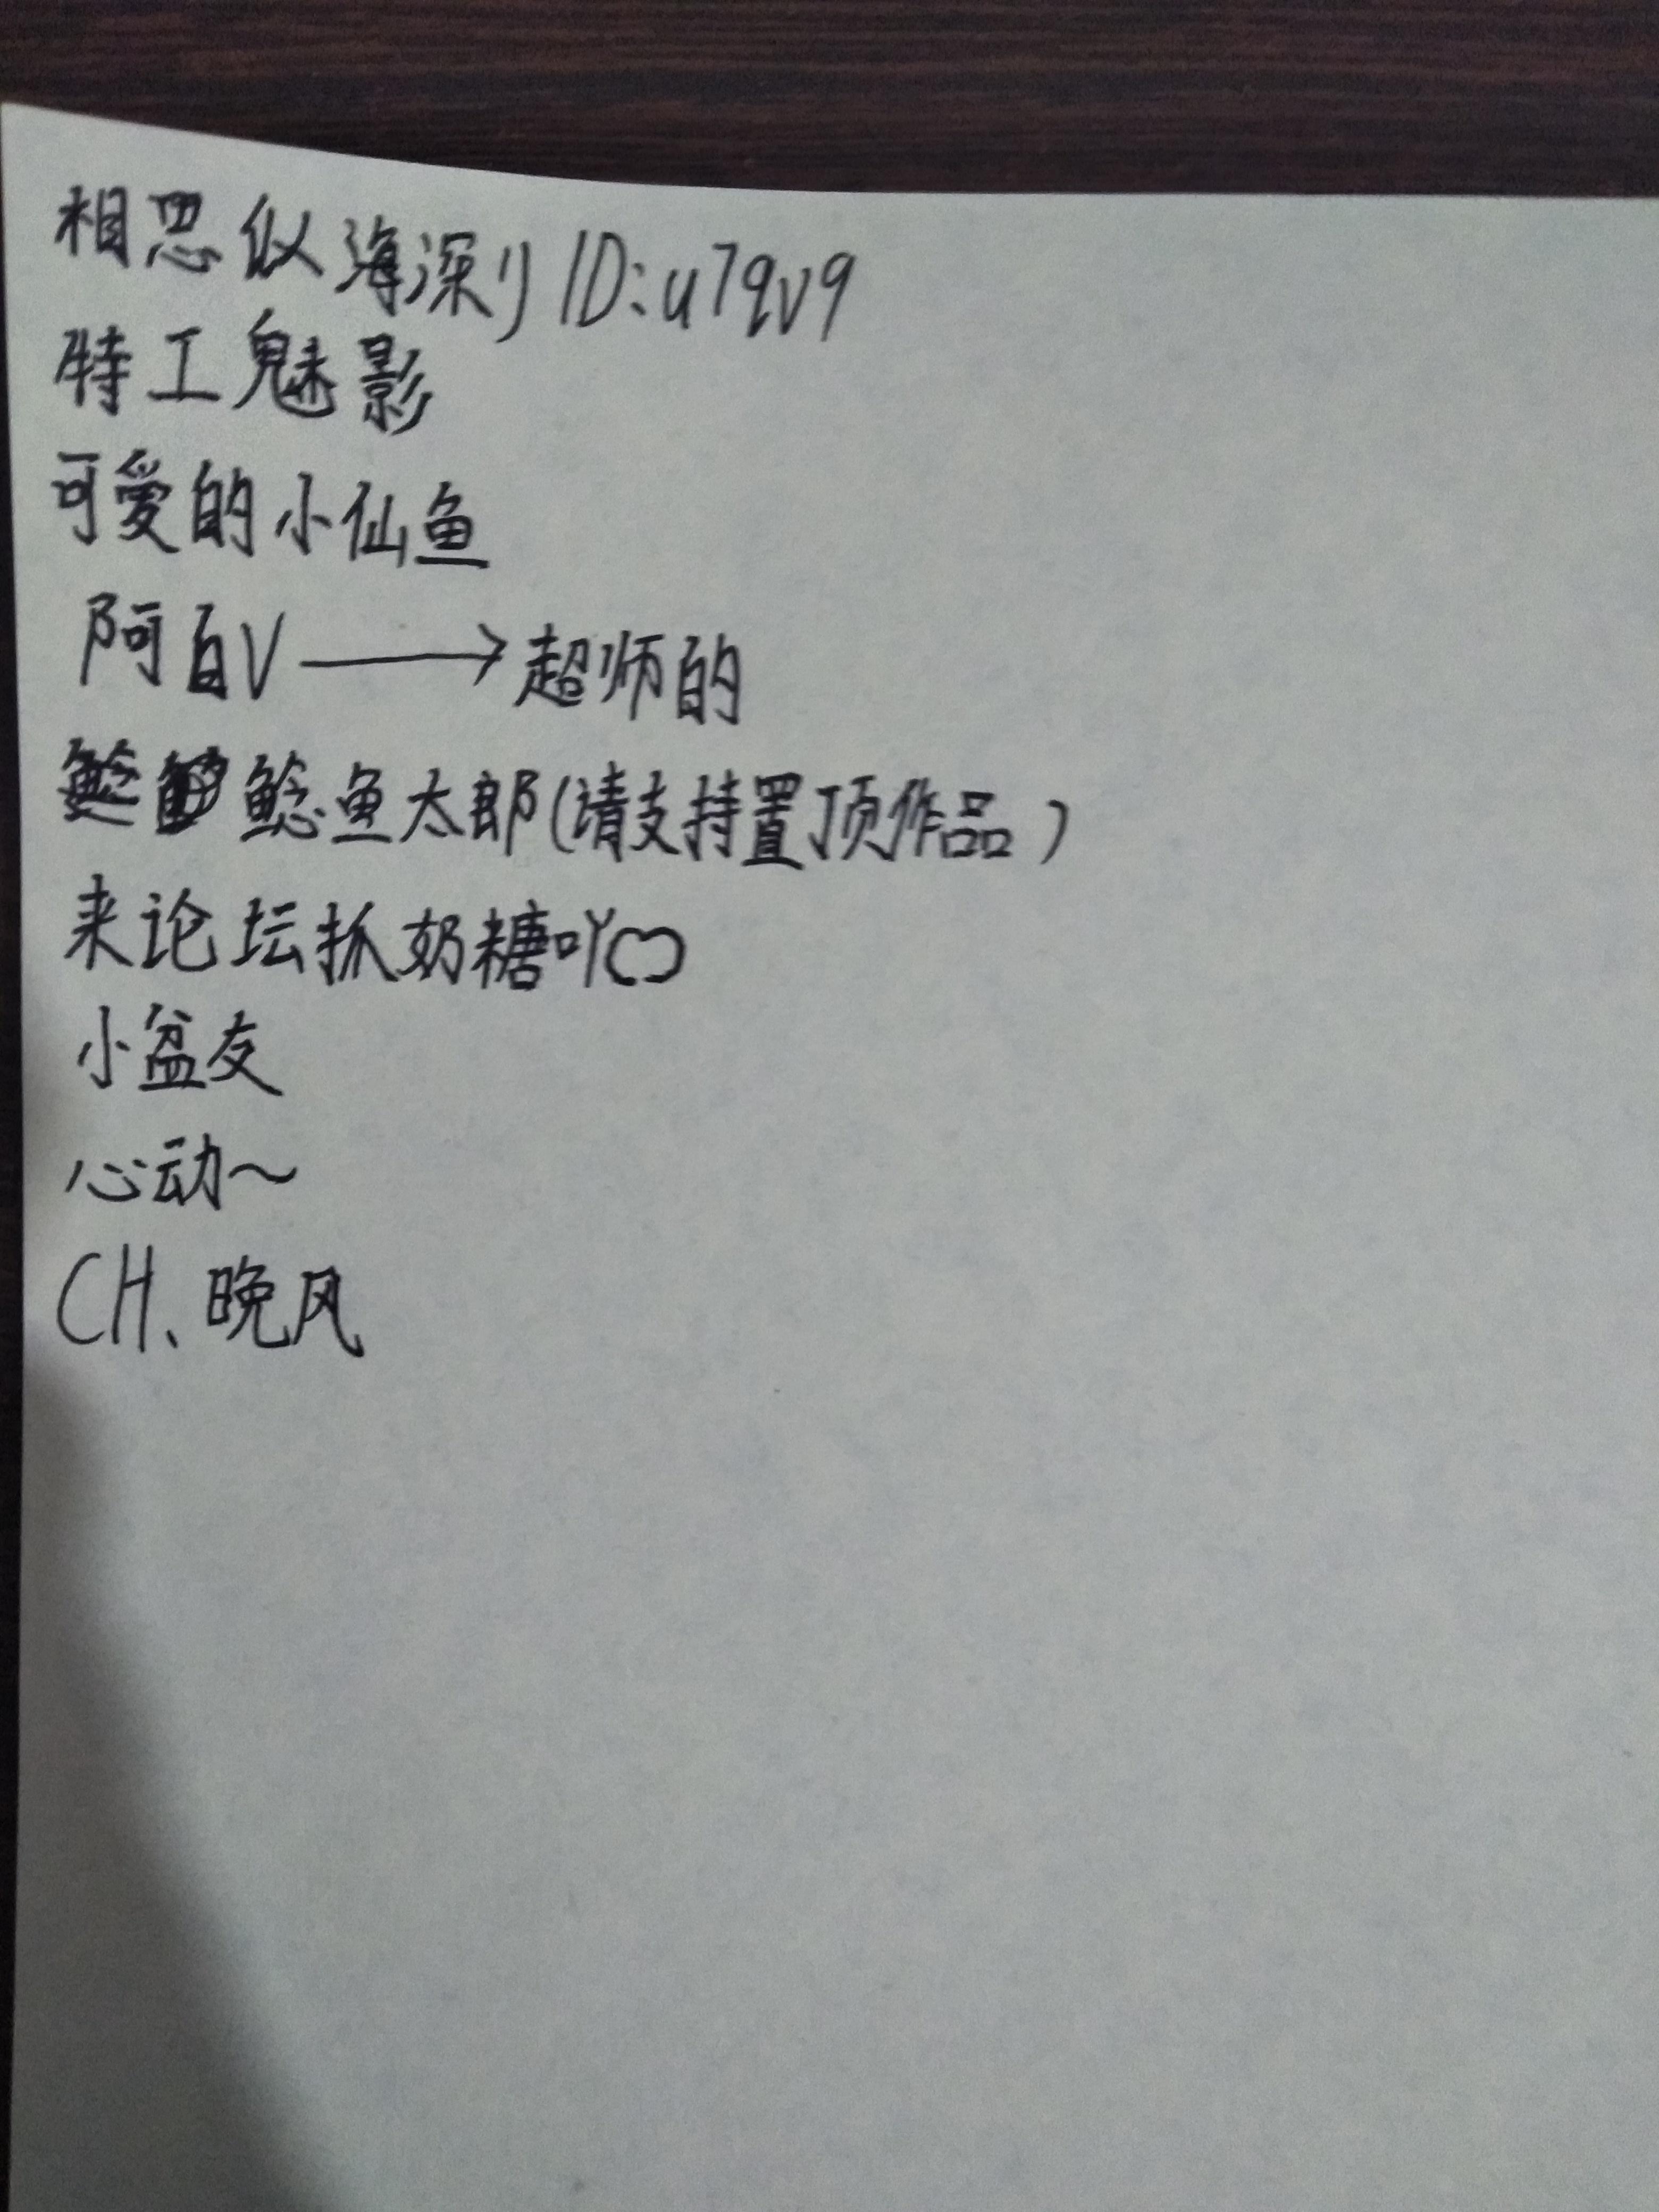 相思似海深 ID:u7qv9
特工魅影
可爱的小仙鱼
阿白V→超师的
鲶鱼太郎(请支持置顶作品)
来论坛抓奶糖吖♡
小盆友
心动~
CH、晚风